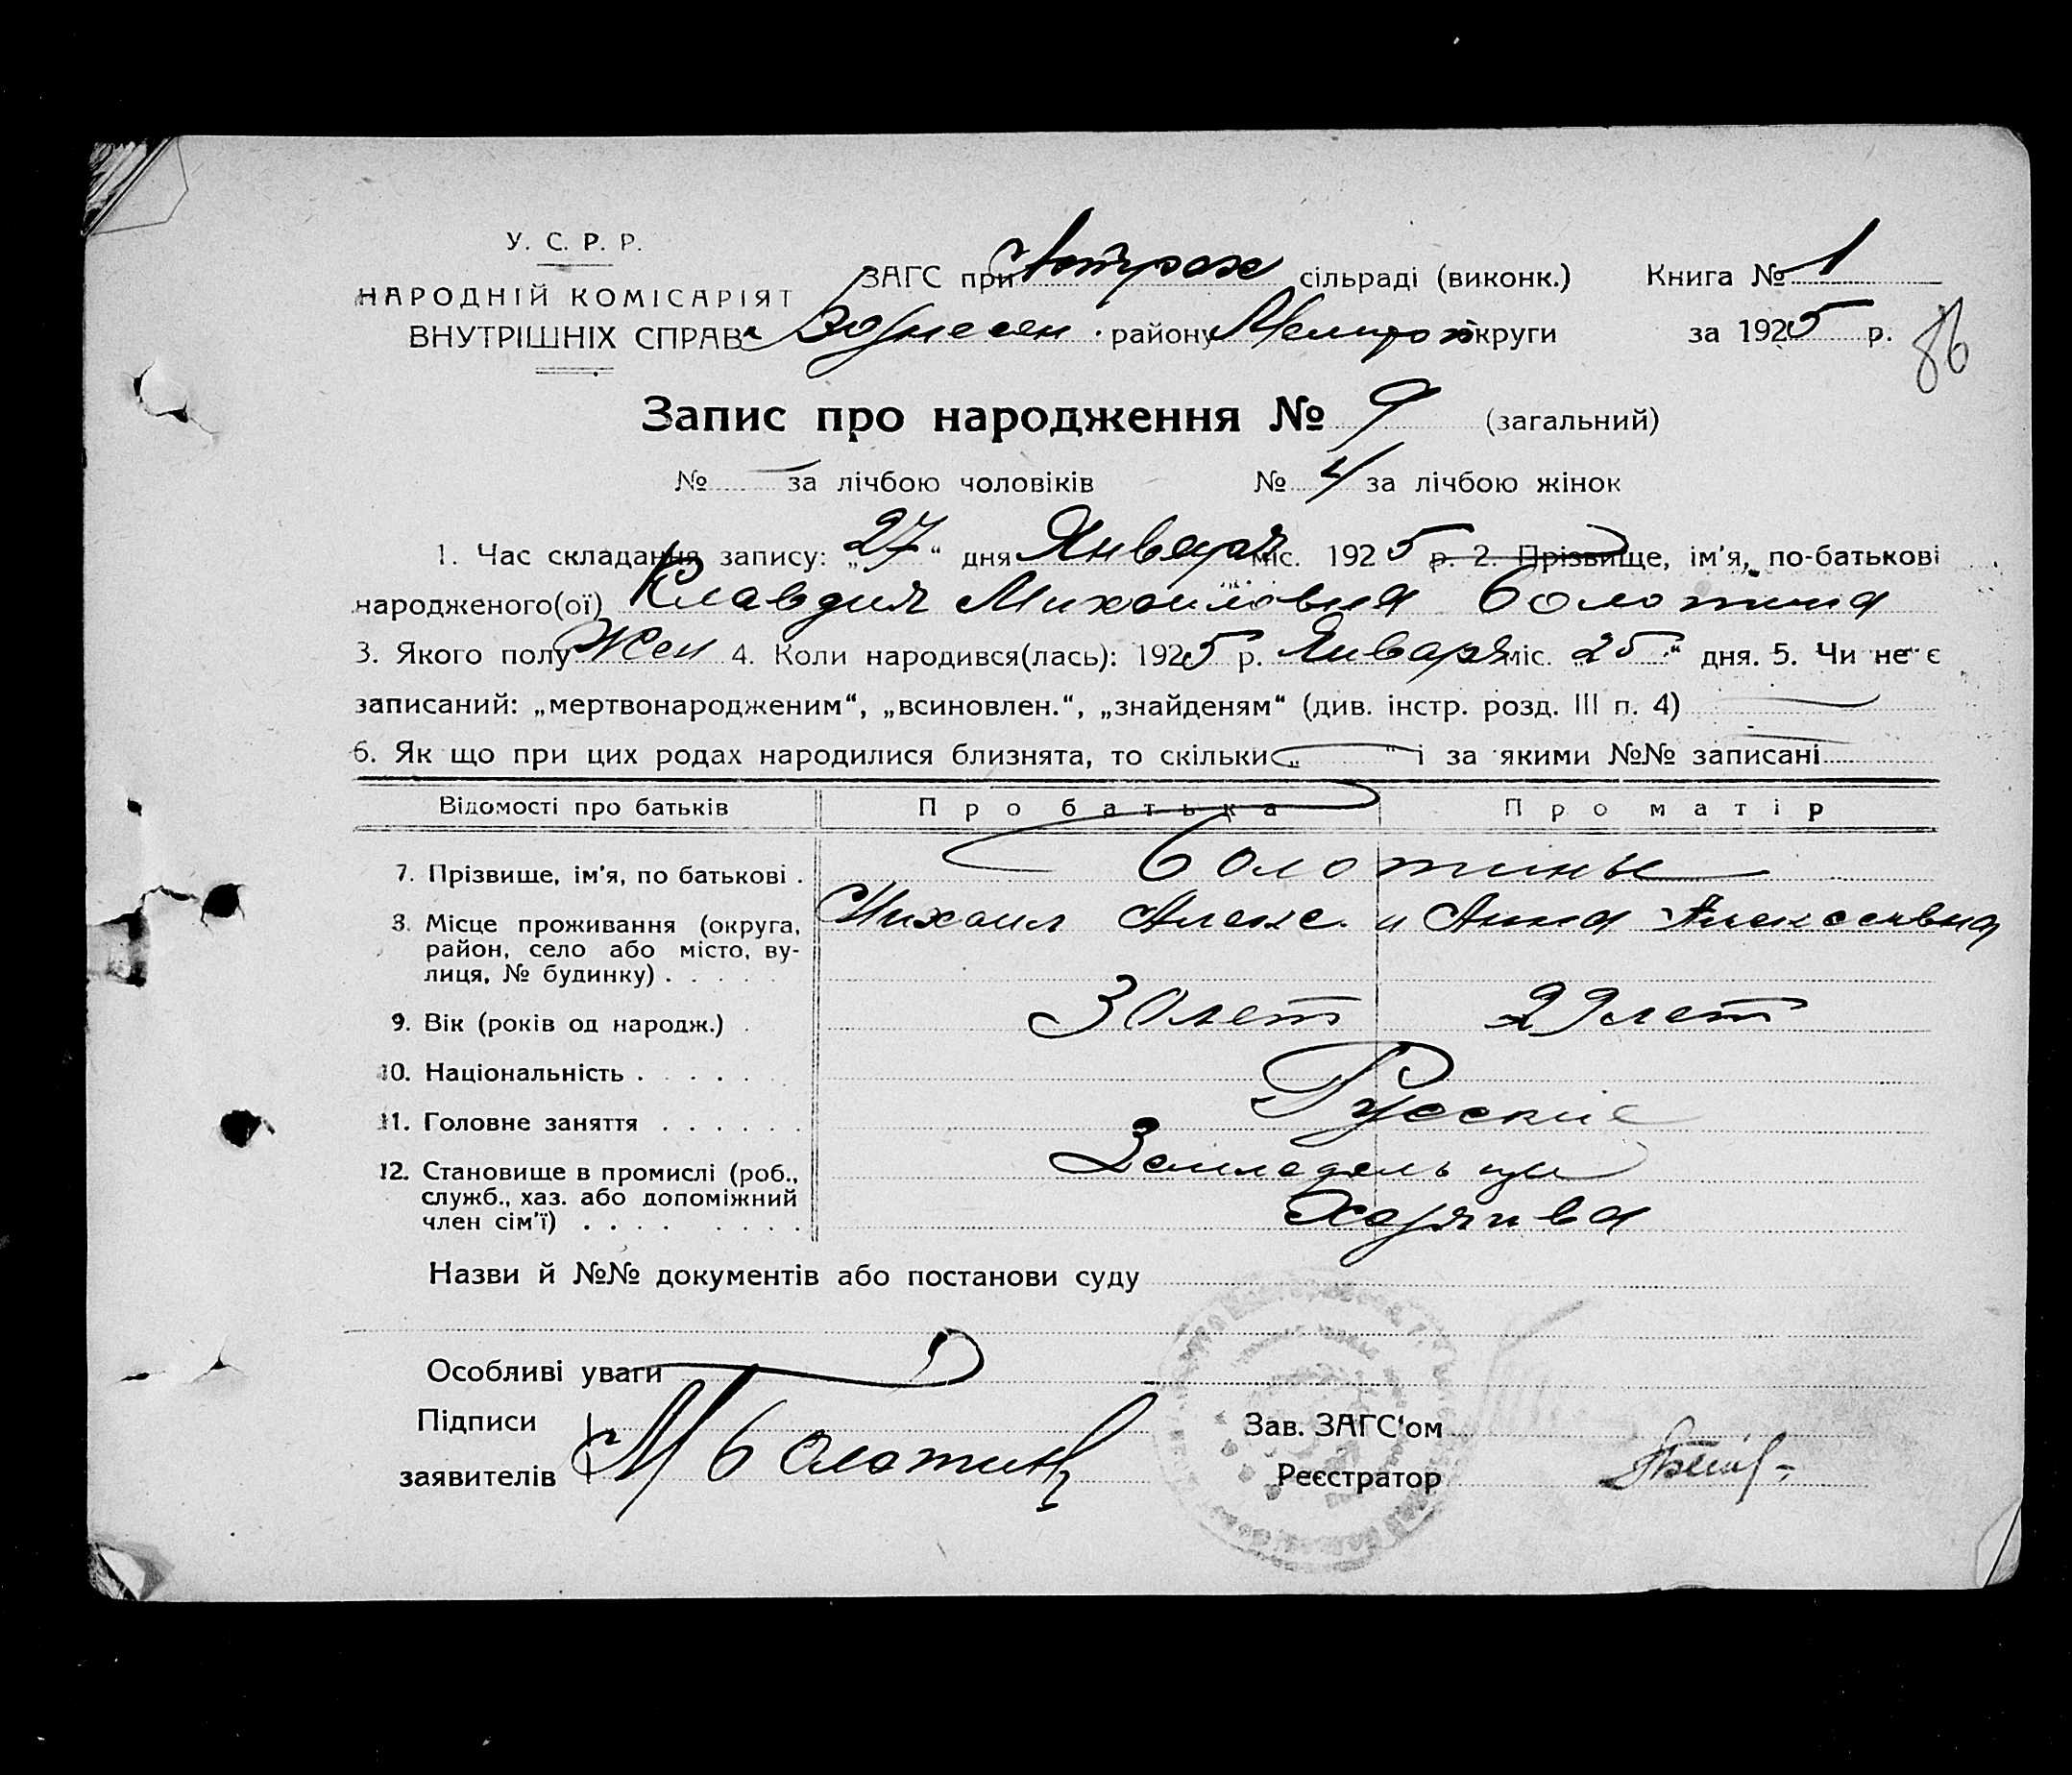 У. С. Р. Р.
НАРОДНІЙ КОМІСАРІЯТ
ВНУТРІШНІХ СПРАВ
ЗАГС при Астрах сільраді (виконк.) Книга № 1
Вознесен. району Мелитоп округи за 1925 р.
86
Запис про народження № 9 (загальний)
№ — за лічбою чоловіків № 4 за лічбою жінок
1. Час складання запису: „27“ дня Января міс. 1925 р. 2. Прізвище, ім'я, по-батькові
народженого(ої) Клавдия Михаиловна Болотина
3. Якого полу Жен 4. Коли народився(лась): 1925 р. Января міс. „25“ дня. 5. Чи не є
записаний: „мертвонародженим“, „всиновлен.“, „знайденям“ (див. інстр. розд. III п. 4) —
6. Як що при цих родах народилися близнята, то скільки „—“ і за якими №№ записані
Відомості про батьків Про батька Про матір
7. Прізвище, ім'я, по батькові . Болотины
8. Місце проживання (округа, Михаил Алекс. и Анна Алексеевна
район, село або місто, ву-
лиця, № будинку) . . . . .
9. Вік (років од народж.) . 30 лет 29 лет
10. Національність . . . . . .
11. Головне заняття . . . . . . Русские
12. Становище в промислі (роб., Земледельцы
служб., хаз. або допоміжний
член сім'ї) . . . . . . . . Хозяива
Назви й №№ документів або постанови суду
Особливі уваги
Підписи
заявителів М Болотин
Зав. ЗАГС'ом
Реєстратор